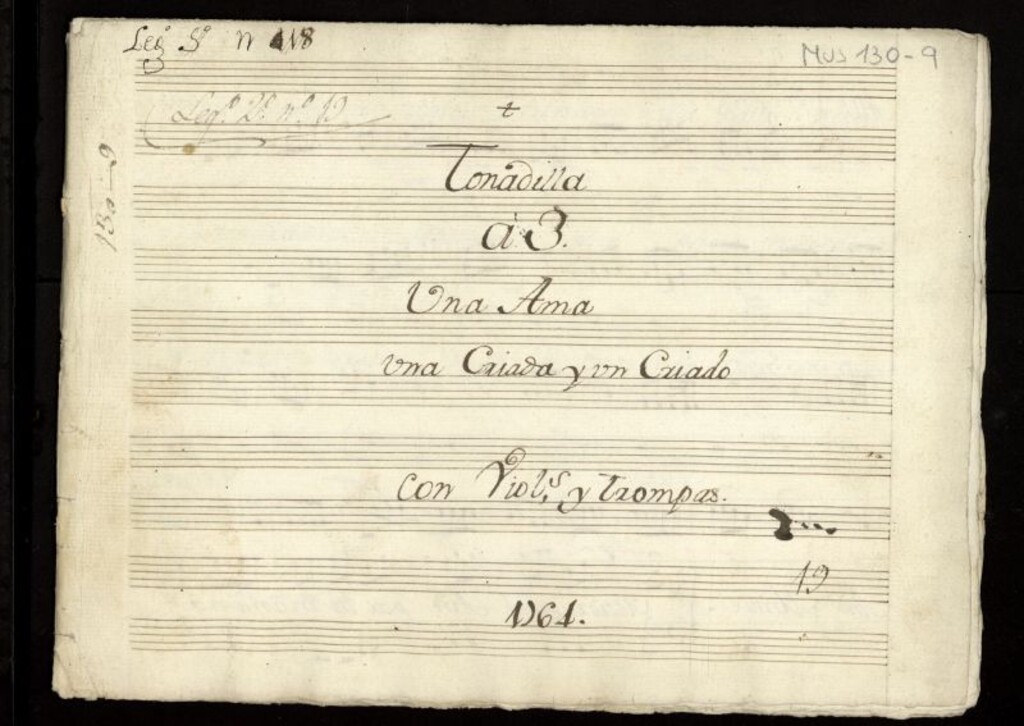 Leg.º 5º n 118
MUS 130-9
Leg.º 2º nº 19
130-9
Tonadilla
à 3.
Una Ama
vna Criada y vn Criado
Con Viol.s y Trompas.
19
1761.